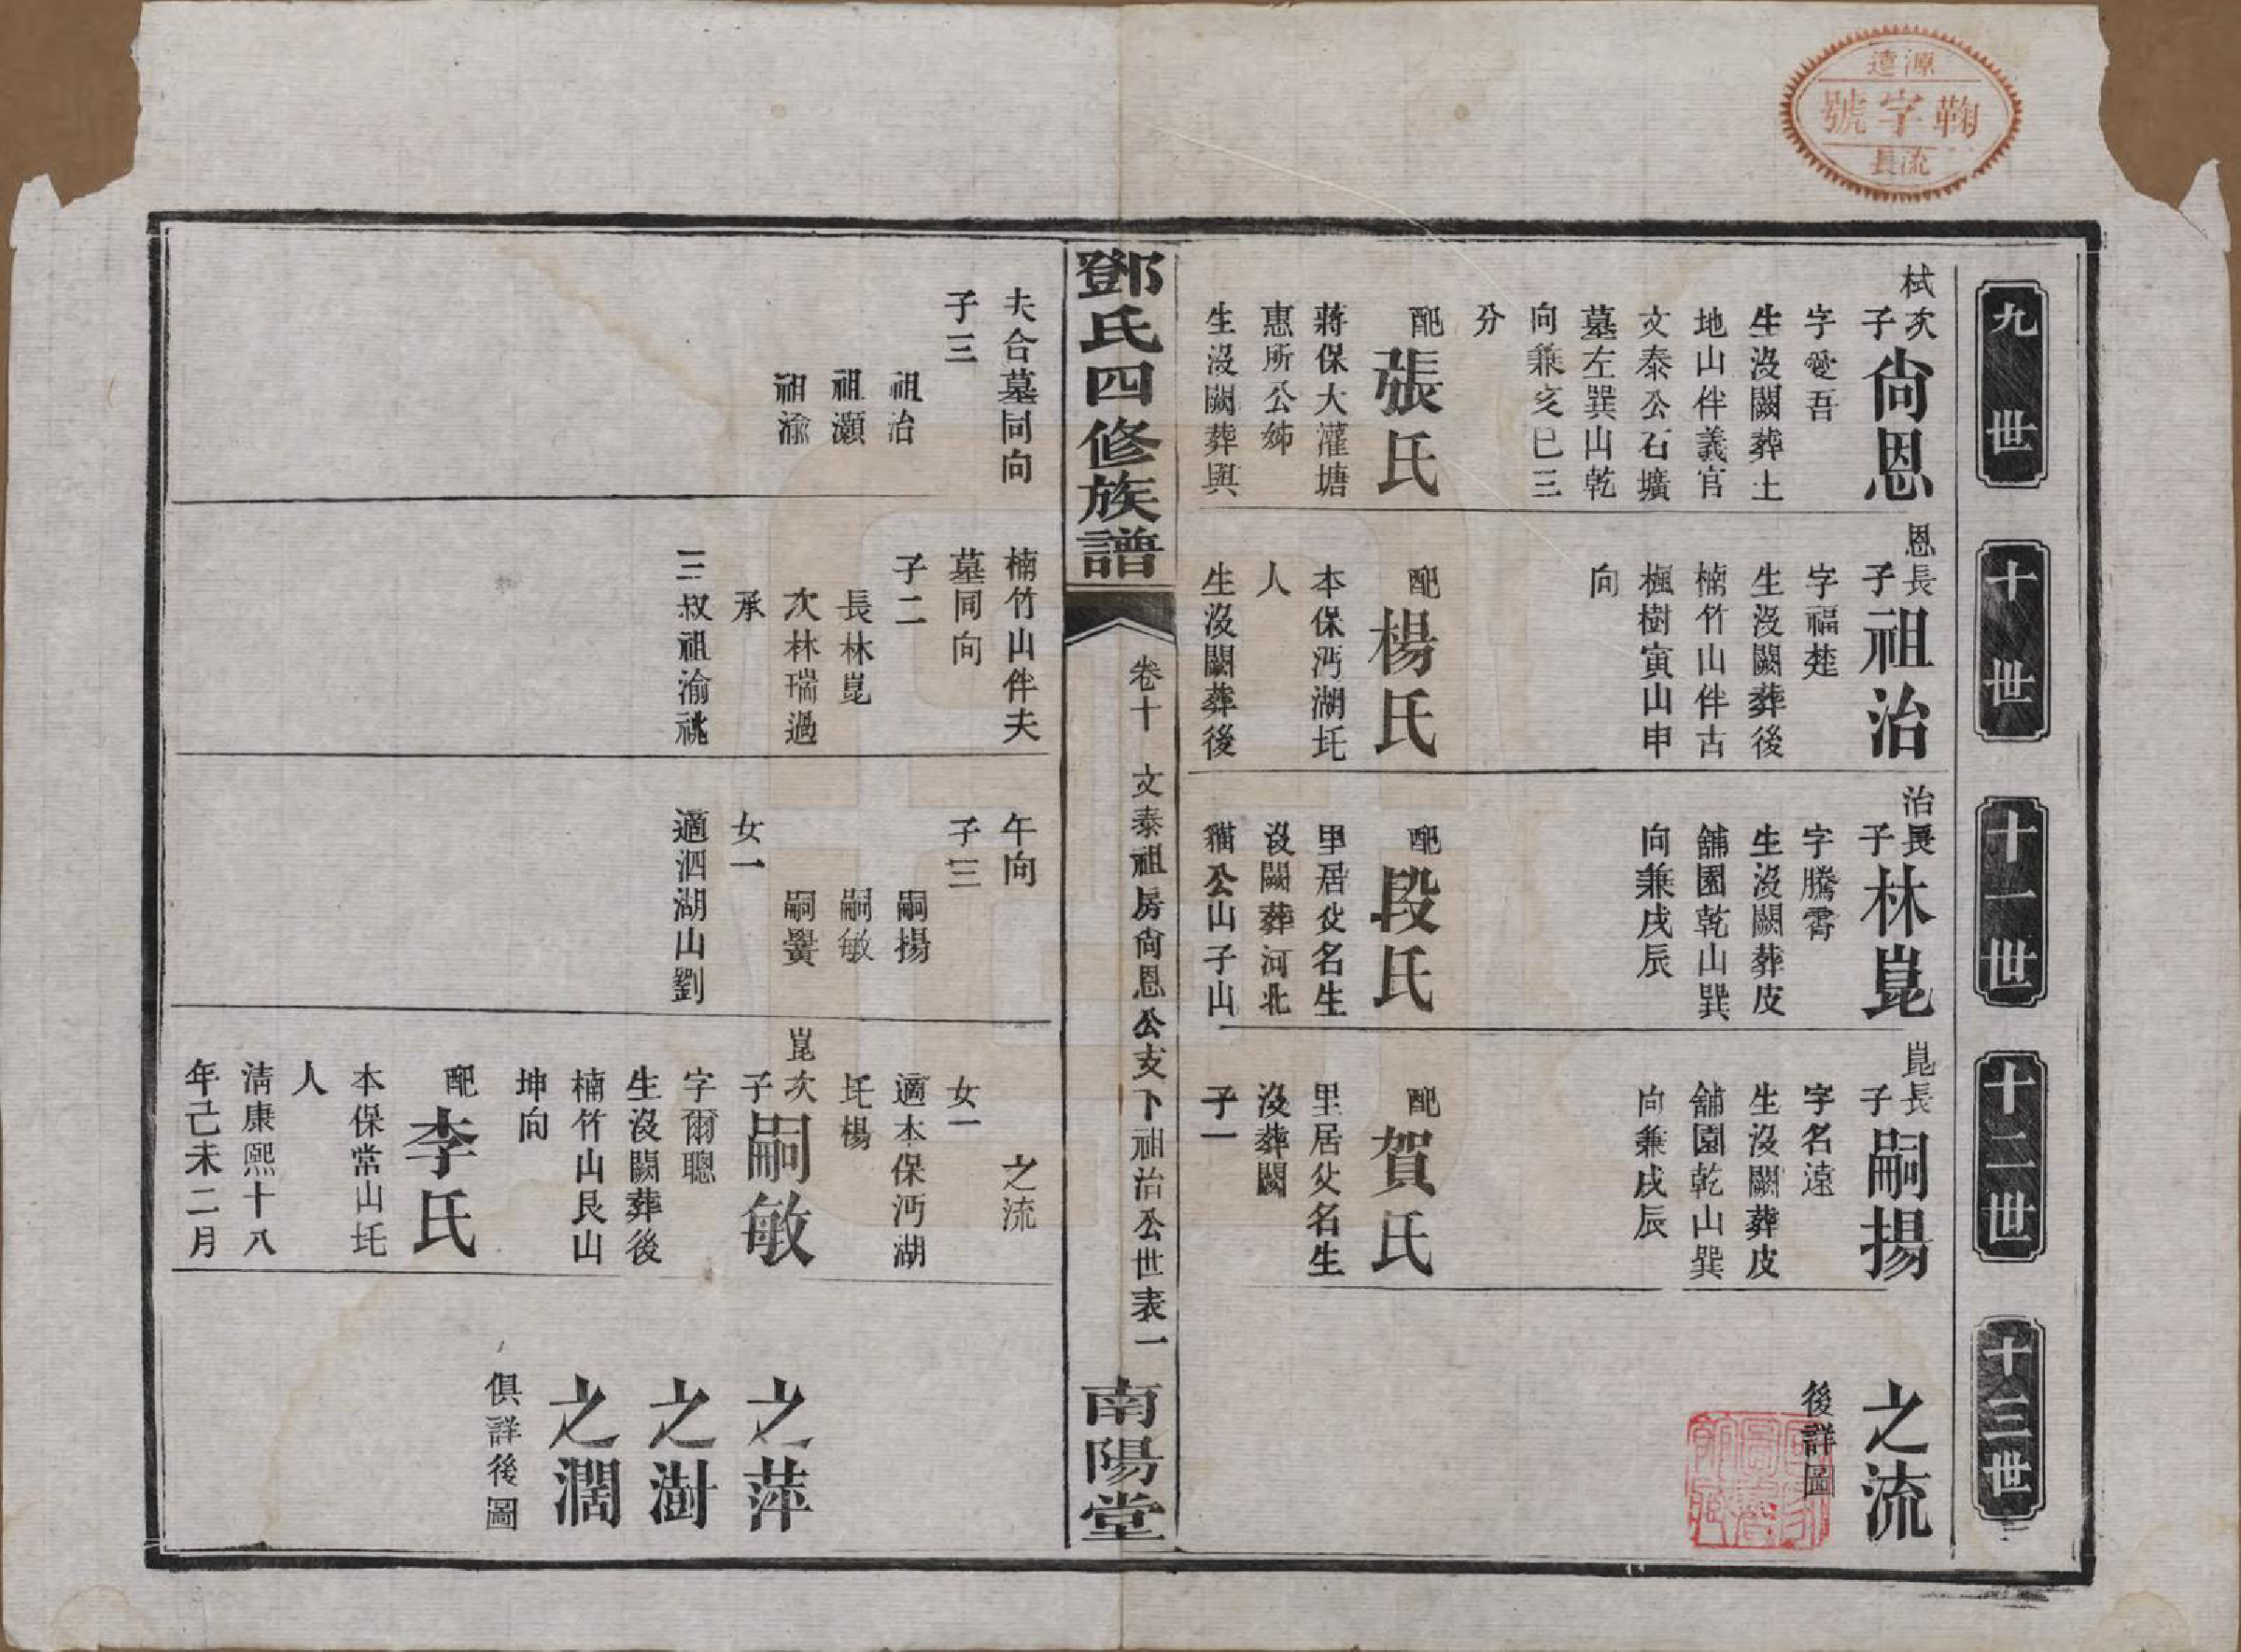 源遠
鞠字號
流長
九世
栻次子尙恩
字愛吾
生沒闕葬土
地山伴義官
文泰公石壙
墓左巽山乾
向兼亥巳三
分
配張氏
蔣保大灌塘
惠所公姊
生沒闕葬與
十世
恩長子祖治
字福楚
生沒闕葬後
楠竹山伴古
楓樹寅山申
向
配楊氏
本保沔湖圫
人
生沒闕葬後
十一世
治長子林崑
字騰霄
生沒闕葬皮
舖園乾山巽
向兼戌辰
配段氏
里居父名生
沒闕葬河北
猫公山子山
十二世
崑長子嗣揚
字名遠
生沒闕葬皮
舖園乾山巽
向兼戌辰
配賀氏
里居父名生
沒葬闕
子一
十三世
之流
後詳圖
鄧氏四修族譜
卷十
文泰祖房尙恩公支下祖治公世表一
南陽堂
夫合墓同向
子三
祖治
祖灝
祖渝
楠竹山伴夫
墓同向
子二
長林崑
次林瑞過
承
三叔祖渝祧
午向
子三
嗣揚
嗣敏
嗣黌
女一
適泗湖山劉
之流
女一
適本保沔湖
圫楊
崑次子嗣敏
字爾聰
生沒闕葬後
楠竹山艮山
坤向
配李氏
本保常山圫
人
清康熙十八
年己未二月
之萍
之澍
之濶
俱詳後圖